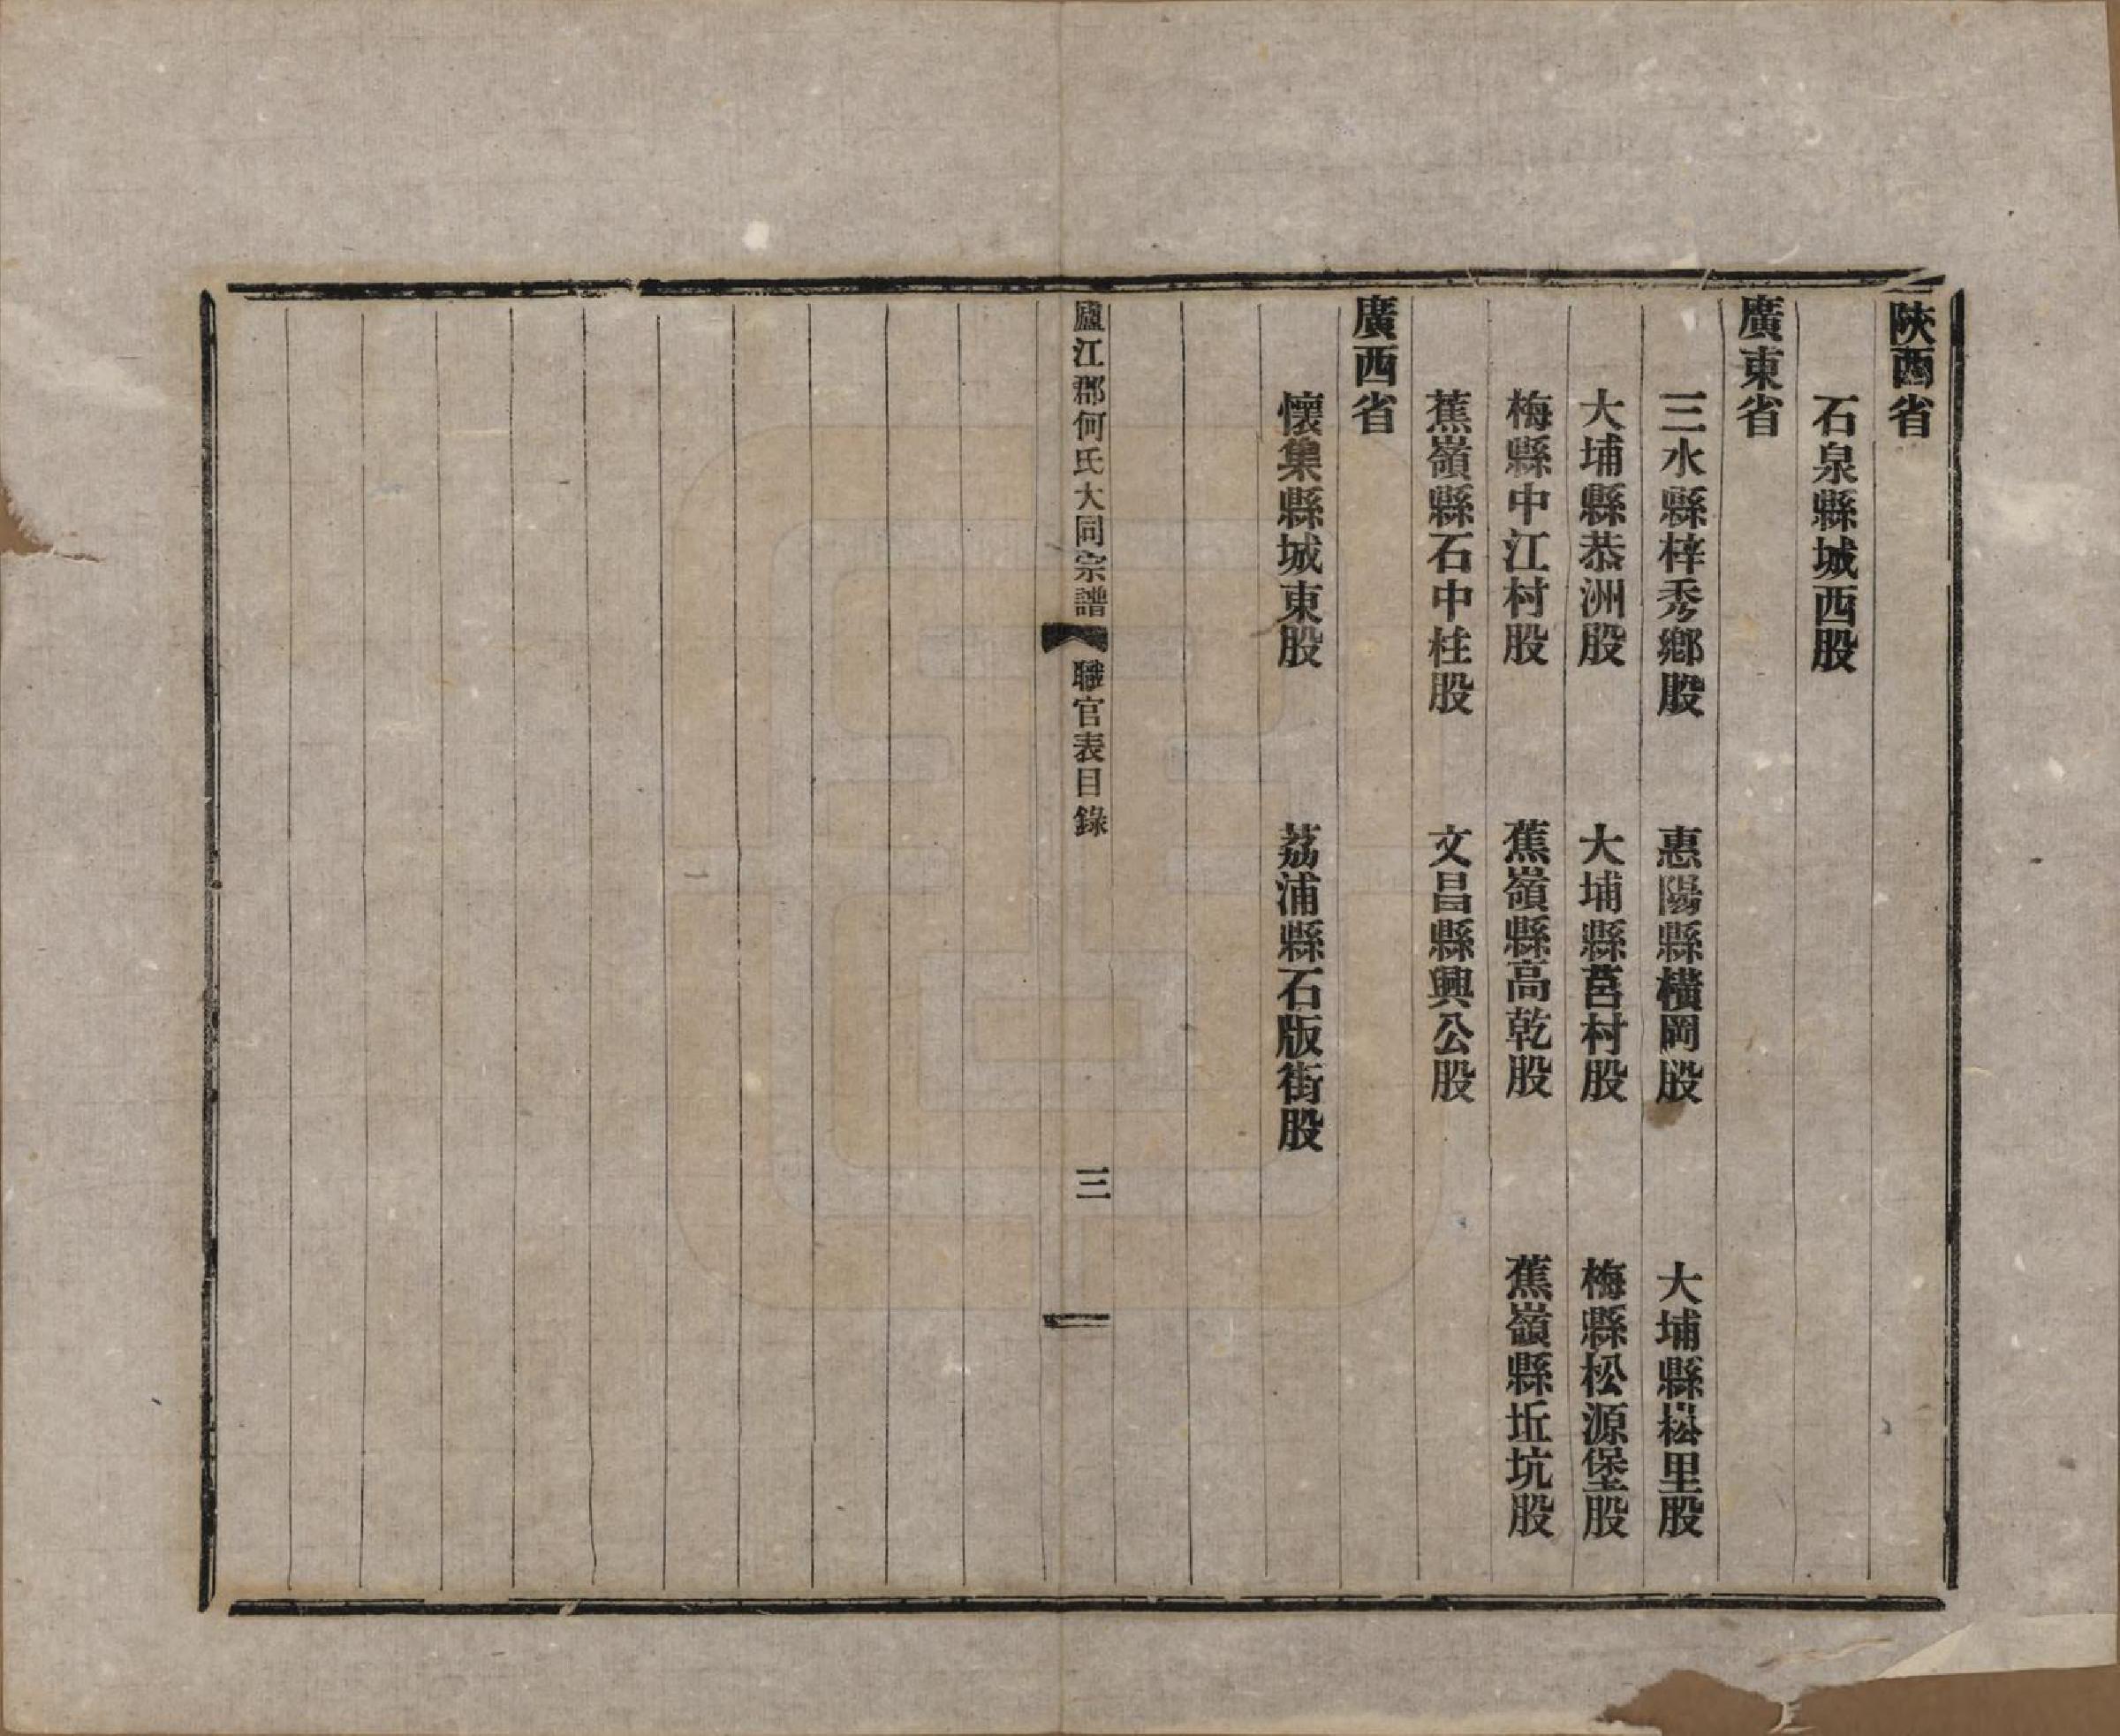 陝西省
石泉縣城西股
廣東省
三水縣梓秀鄉股　惠陽縣橫岡股　大埔縣崧里股
大埔縣恭洲股　大埔縣莒村股　梅縣松源堡股
梅縣中江村股　蕉嶺縣高乾股　蕉嶺縣坵坑股
蕉嶺縣石中柱股　文昌縣興公股
廣西省
懷集縣城東股　荔浦縣石版街股
廬江郡何氏大同宗譜　職官表目錄　三